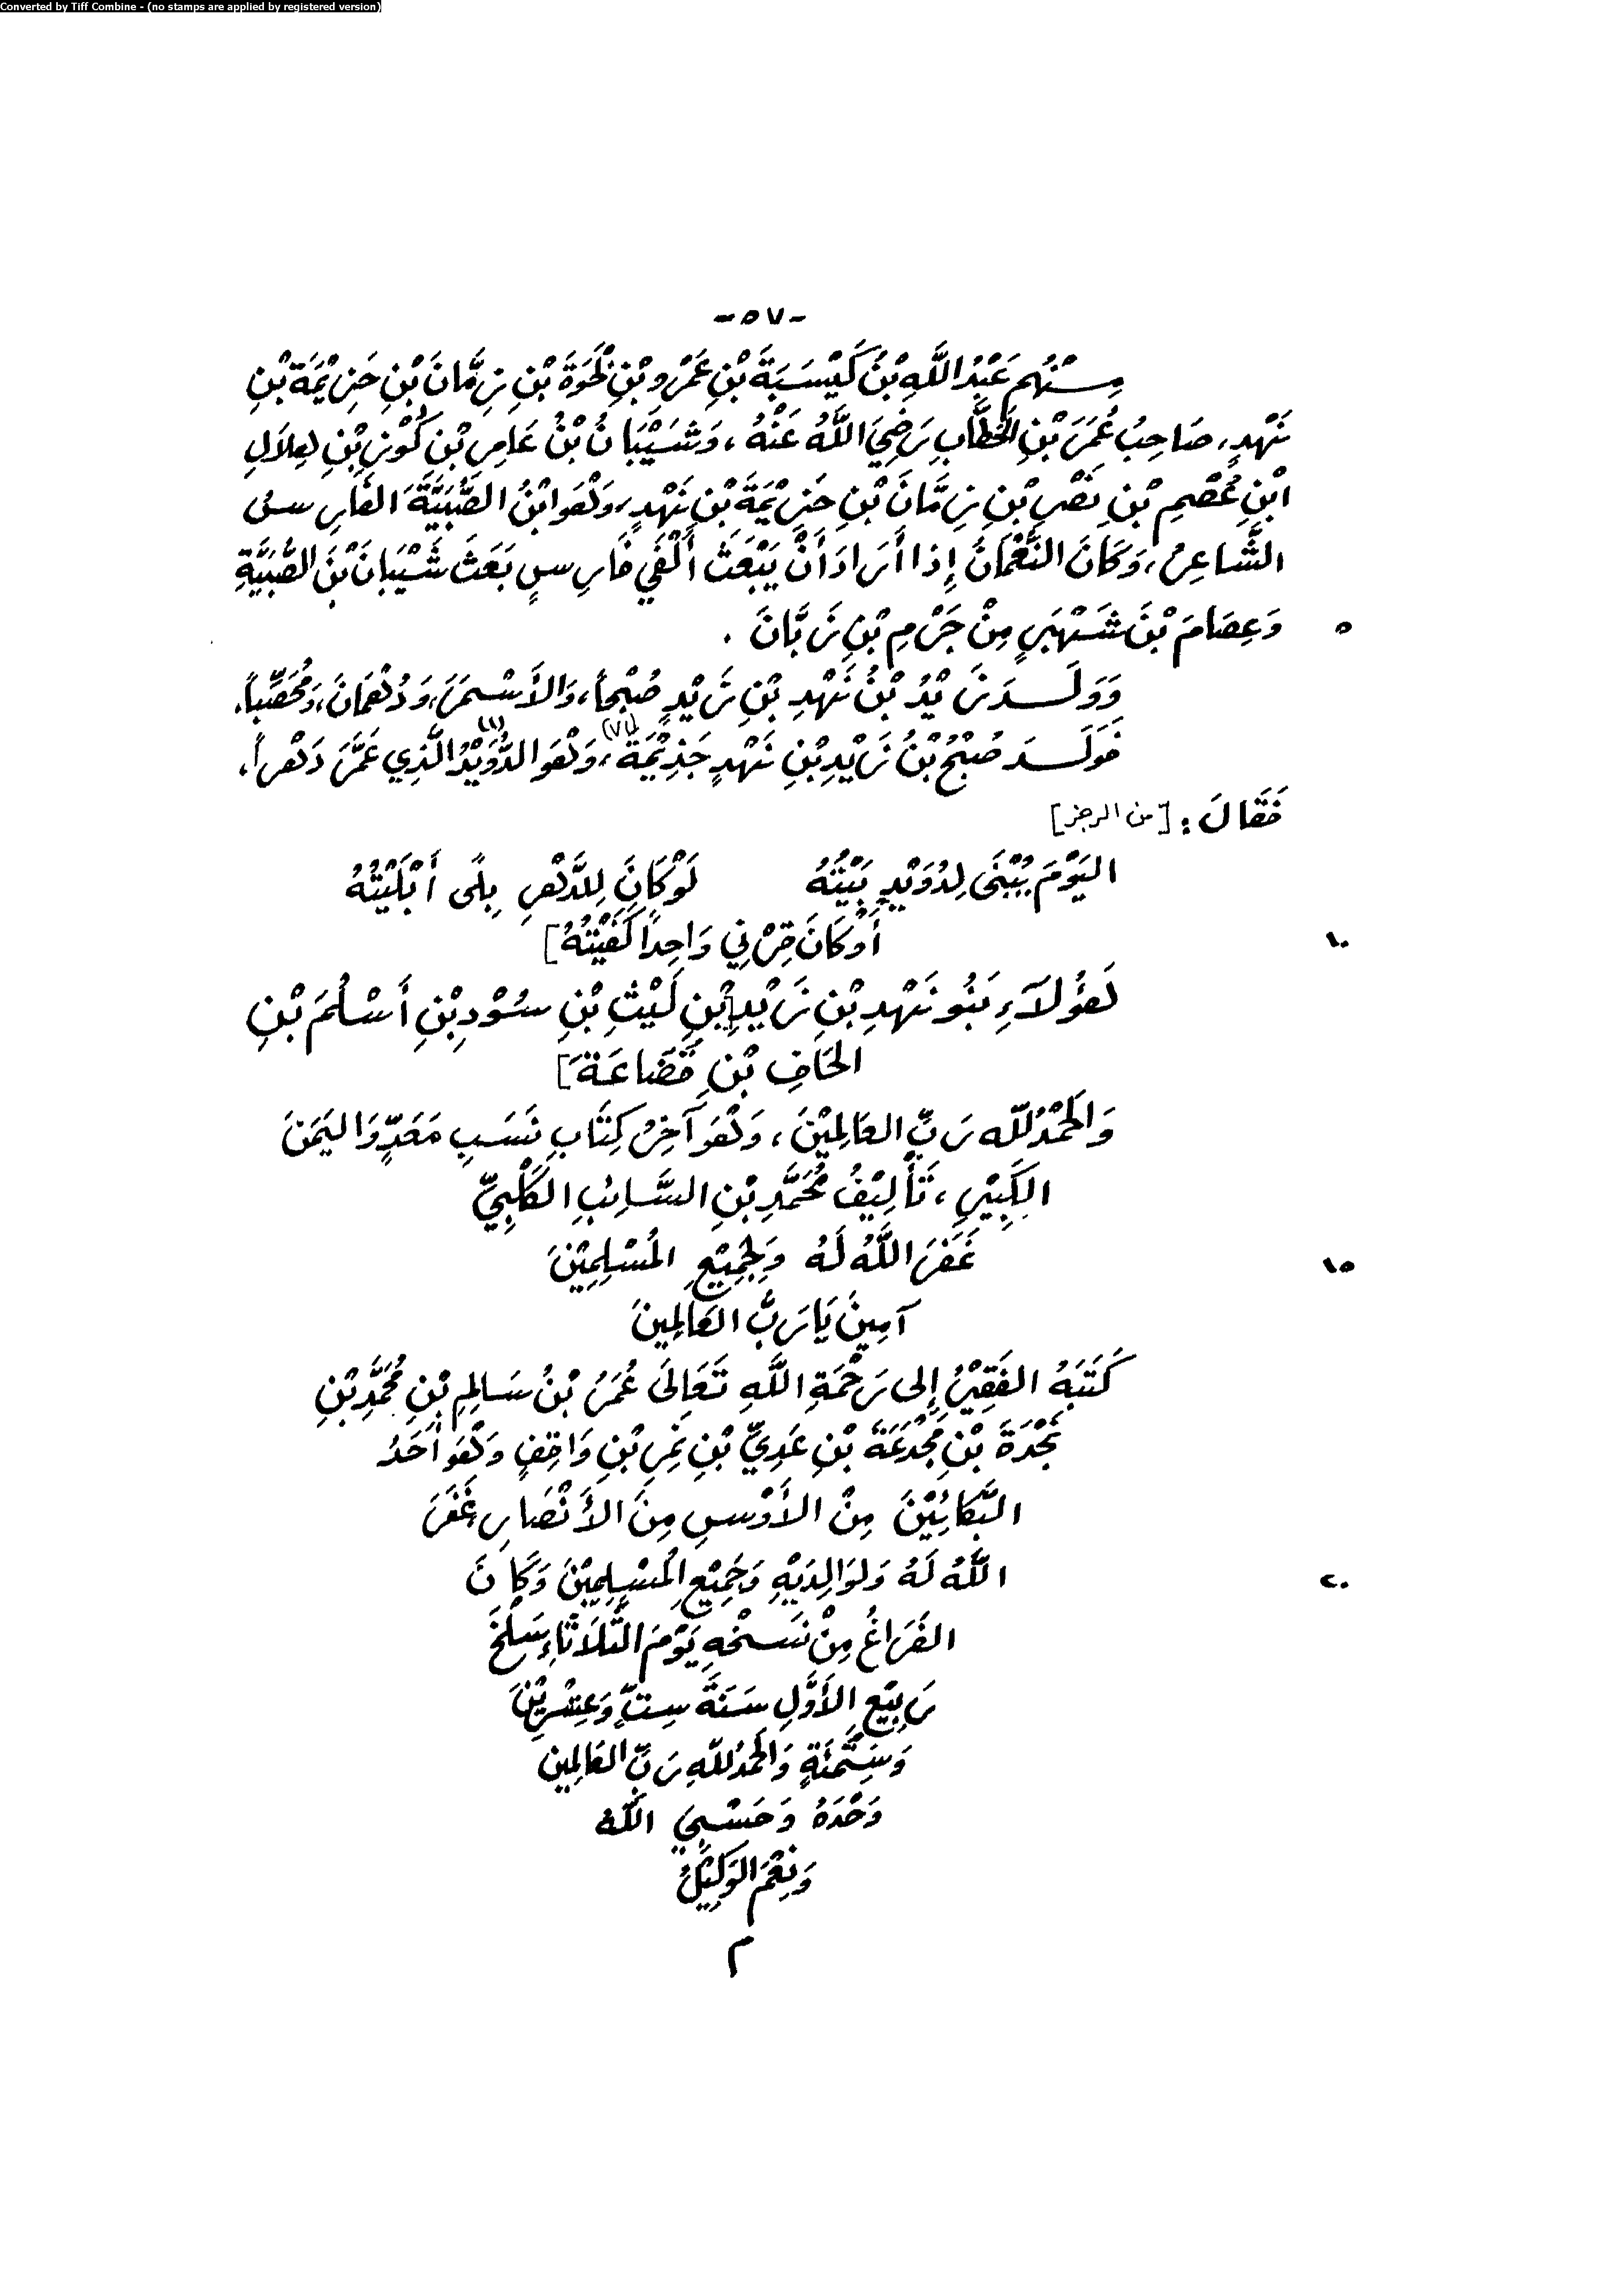 Converted by Tiff Combine - (no stamps are applied by registered version)
-٥٧-
مِنْهُم عَبْدُ اللَّهِ بْنُ كَيْسَبَةَ بْنِ عَمْرِو بْنِ ظَحْوَةَ بْنِ زِمَّانَ بْنِ حَزِيْمَةَ بْنِ
نَهْدٍ، صَاحِبُ عُمَرَ بْنِ الخَطَّابِ رَضِيَ اللَّهُ عَنْهُ، وَشَيْبَانُ بْنُ عَامِرِ بْنِ كُوْزِ بْنِ هِلاَلِ
ابْنِ عُصْمِ بْنِ نَصْرِ بْنِ زِمَّانَ بْنِ حَزِيْمَةَ بْنِ نَهْدٍ، وَهُوَ ابْنُ الضُّبَيَّةِ، الفَارِسُ
الشَّاعِرُ، وَكَانَ النُّعْمَانُ إِذَا أَرَادَ أَنْ يَبْعَثَ أَلْفَي فَارِسٍ بَعَثَ شَيْبَانَ بْنَ الضُّبَيَّةِ
وَعِصَامَ بْنَ شَهْبَرٍ مِنْ جَرْمِ بْنِ زَبَّانَ . ٥
وَوَلَدَ زَيْدُ بْنُ نَهْدِ بْنِ زَيْدٍ صُبْحاً، وَالأَسْمَرَ، وَدُهْمَانَ، وَمُحَصِّباً.
فَوَلَدَ صُبْحُ بْنُ زَيْدِ بْنِ نَهْدٍ جَذِيْمَةَ (٧١)، وَهُوَ الدُّوَيْدُ (١) الَّذِي عَمَّرَ دَهْراً،
فَقَالَ : [من الرجز]
اليَوْمَ يُبْنَى لِدُوَيْدٍ بَيْتُهُ لَوْ كَانَ لِلدَّهْرِ بِلًى أَبْلَيْتُهُ
أَوْ كَانَ قِرْنِي وَاحِداً كَفَيْتُهُ] ١٠
هَؤُلاَءِ بَنُو نَهْدِ بْنِ زَيْدِ [بْنِ لَيْثِ بْنِ سُوْدِ بْنِ أَسْلُمَ بْنِ
الحَافِ بْنِ قُضَاعَةَ]
وَالحَمْدُ للّه رَبِّ العَالمِيْنَ، وَهُوَ آخِرُ كِتَابِ نَسَبِ مَعَدٍّ وَاليَمَنَ
الكَبِيْرِ، تَأْلِيْفُ مُحَمَّدِ بْنِ السَّائِبِ الكَلْبِيِّ
غَفَرَ اللَّهُ لَهُ وَلِجَمِيْعِ المُسْلِمِيْنَ ١٥
آمِينَ يَا رَبَّ العَالمِينَ
كَتَبَهُ الفَقِيْرُ إِلى رَحْمَةِ اللَّهِ تَعَالَى عُمَرُ بْنُ سَالِمِ بْنِ مُحَمَّدِ بْنِ
نَجْدَةَ بْنِ مَجْدَعَةَ بْنِ عَدِيِّ بْنِ نَمِرِ بْنِ وَاقِفٍ وَهُوَ أَحَدُ
البَّكَائِيْنَ مِنْ الأَوْسِ مِنَ الأَنْصَارِ غَفَرَ
اللَّهُ لَهُ وَلِوَالِدَيْهِ وَجَمِيْعِ المُسْلِمِيْنَ وَكَانَ ٢٠
الفَرَاغُ مِنْ نَسْخِهِ يَوْمَ الثَّلاَثَاءِ سَلْخَ
رَبِيْعِ الأَوَّلِ سَنَةَ سِتٍّ وَعِشْرِيْنَ
وَسِتَّمِئَةٍ وَالحَمْدُ للّهِ رَبِّ العَالمِين
وَحْدَهُ وَحَسْبِيَ اللّهُ
وَنِعْمَ الوَكِيْلُ
م